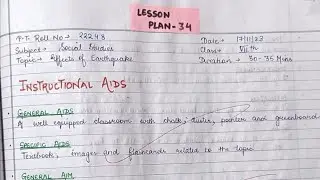 LESSON
PLAN-34
P.T. Roll.No→ 22243
Date→ 17/11/23
Subject→ Social Studies
Class→ VIIth
Topic→ Effects of Earthquake
Duration→ 30-35 Mins
INSTRUCTIONAL AIDS
GENERAL AIDS
A well equipped classroom with chalk, duster, pointer and greenboard
SPECIFIC AIDS
Textbook, images and flashcards related to the topic
GENERAL AIM